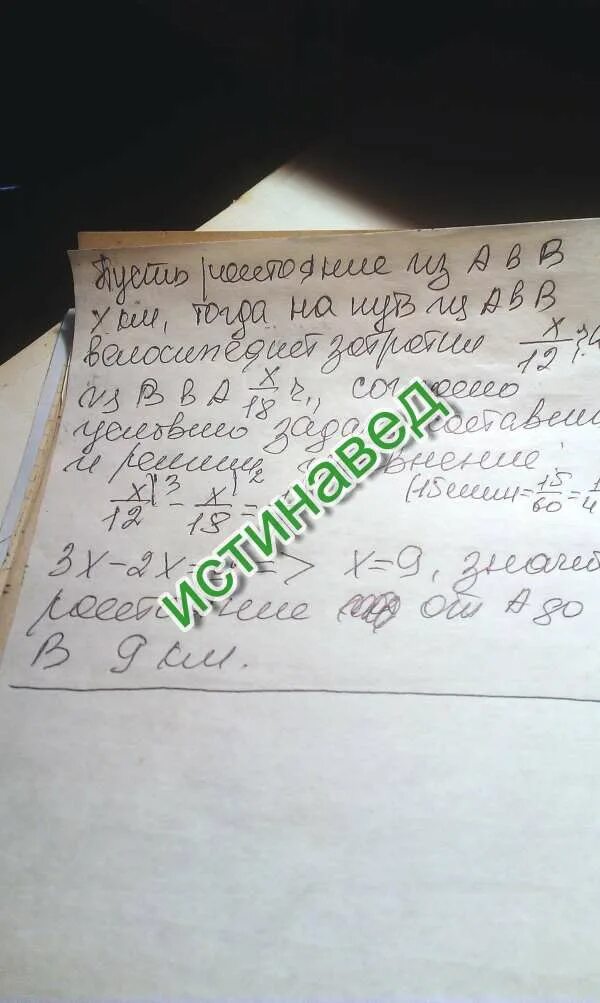 Пусть расстояние из А в В
х км, тогда на путь из А в В
велосипедист затратил x/12 ч
из В в А x/18 ч., согласно
условию составим
и решим
x/12 \3 - x/18 \2 = (15 мин = 15/60 = 1/4
3х - 2х = => х = 9, значит
расстояние от А до
В 9 км.
истинавед